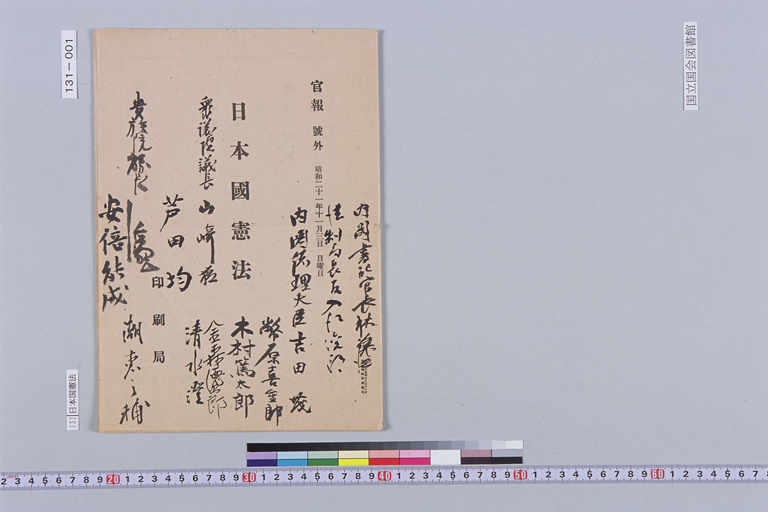 131-001
国立国会図書館
官報 號外 昭和二十一年十一月三日 日曜日
日本國憲法
印刷局
内閣書記官長 林譲治
法制局長官 入江俊郎
内閣総理大臣 吉田茂
幣原喜重郎
木村篤太郎
金森徳次郎
清水澄
衆議院議長 山崎猛
芦田均
貴族院
安倍能成
潮恵之輔
日本国憲法
2 3 4 5 6 7 8 9 20 1 2 3 4 5 6 7 8 9 30 1 2 3 4 5 6 7 8 9 40 1 2 3 4 5 6 7 8 9 50 1 2 3 4 5 6 7 8 9 60 1 2 3 4 5 6 7